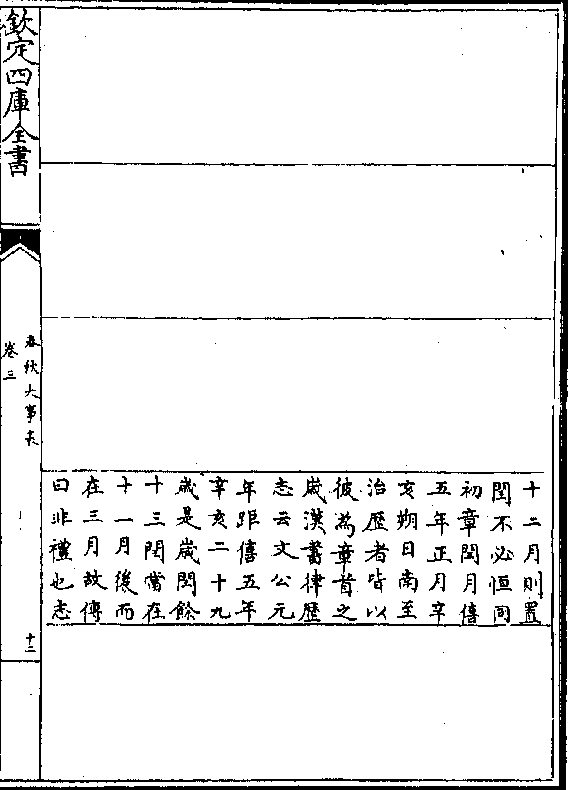 十二月則置
閏不必恒同
初章閏月僖
五年正月辛
亥朔日南至
治歴者皆以
彼為章首之
歲漢書律歴
志云文公元
年距僖五年
辛亥二十九
歲是歲閏餘
十三閏當在
十一月後而
在三月故傳
曰非禮也志
欽定四庫全書
春秋大事表
卷三
十二